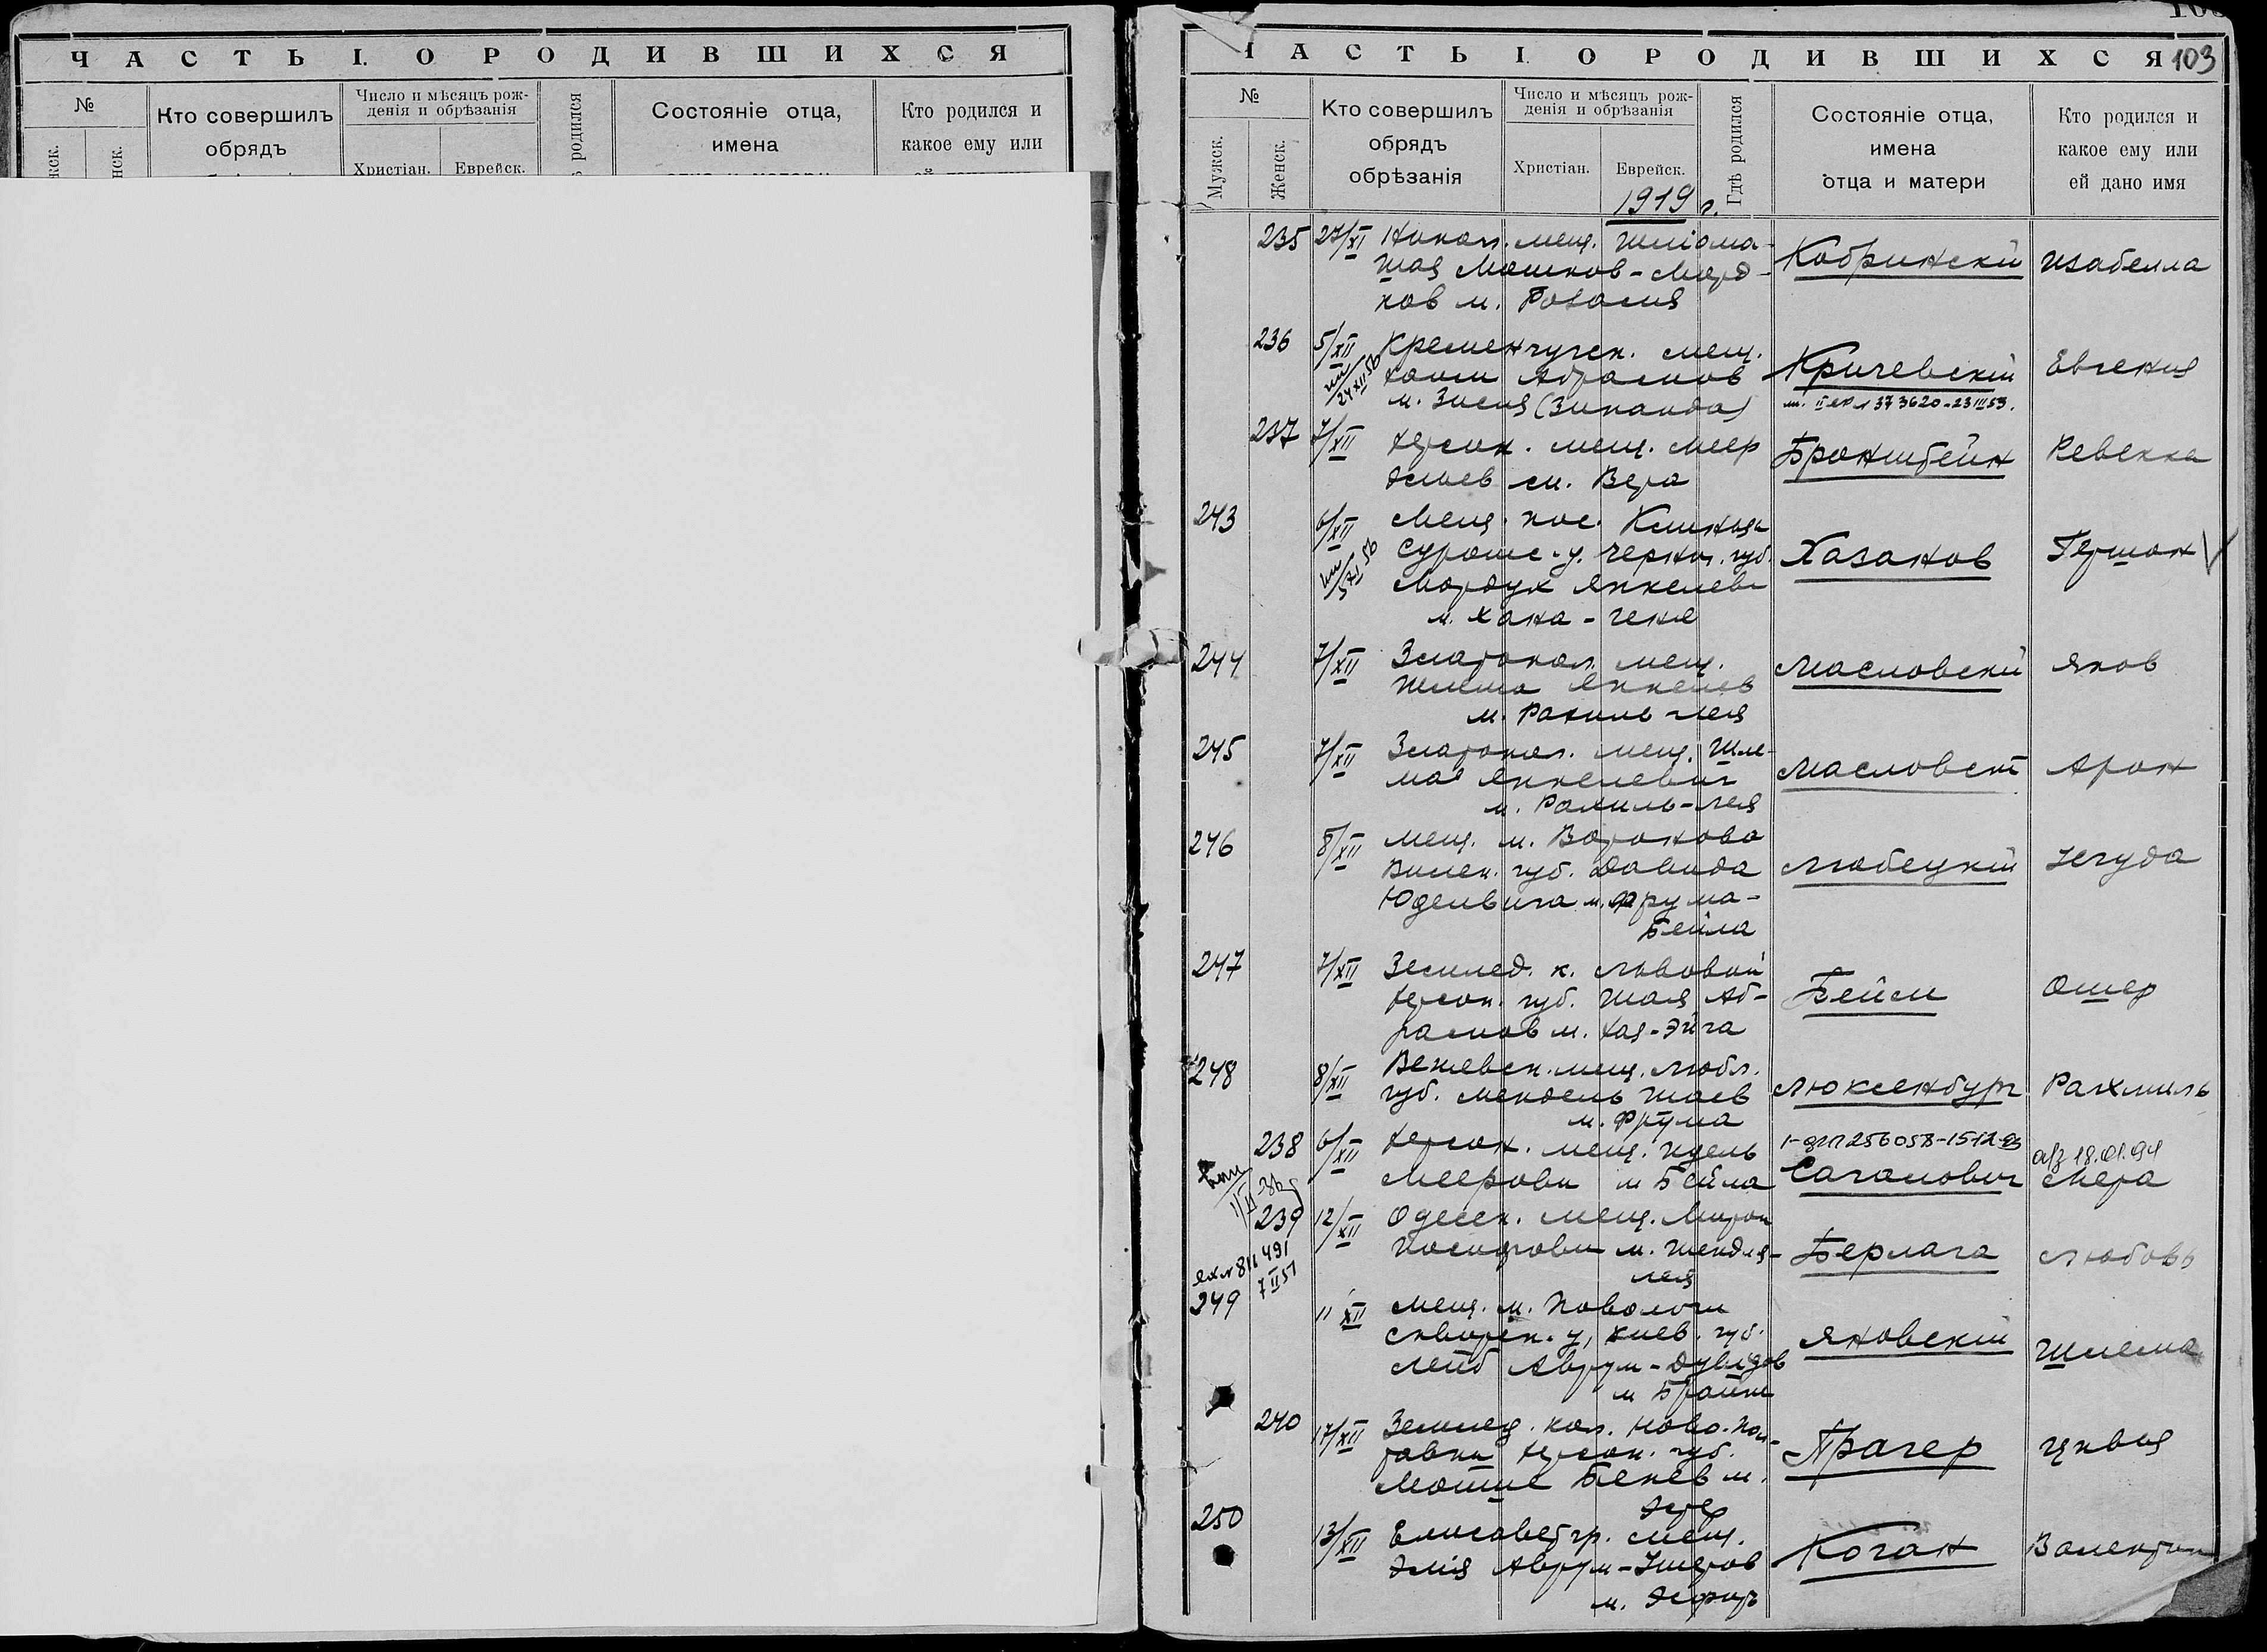 ЧАСТЬ I. О РОДИВШИХСЯ
№
Кто совершилъ
обрядъ
Число и мѣсяцъ рож-
денія и обрѣзанія
Христіан.
Еврейск.
родился
Состояніе отца,
имена
Кто родился и
какое ему или
ЧАСТЬ I. О РОДИВШИХСЯ
103
№
Мужск.
Женск.
Кто совершилъ
обрядъ
обрѣзанія
Число и мѣсяцъ рож-
денія и обрѣзанія
Христіан.
Еврейск.
1919 г.
Гдѣ родился
Состояніе отца,
имена
отца и матери
Кто родился и
какое ему или
ей дано имя
235 27/XI Никол. мещ. Шліома-
Шая Мошков-Морд-
ков м. Розалия
Кобринскій Изабелла
236 5/XII Кременчугск. мещ.
24 XII 56
Хаим Абрамов
м. Зисля (Зинаида)
Кричевскій Евгения
373620-23 III 53.
237 7/XII Херсон. мещ. Меер
м. Вера
Бронштейн Ревекка
243 6/XII Мещ. пос. Клинцы
Сураж. у. Черниг. губ.
Мордух Янкелев
м. Хана-Геня
Хазанов Гершон
244 7/XII Златопол. мещ.
Шлема Янкелев
м. Рахиль-Лея
Масловскій Яков
245 7/XII Златопол. мещ. Шле-
ма Янкелевич
м. Рахиль-Лея
Масловскій Арон
246 8/XII Мещ. м. Вороново
Вилен. губ. Давида
Юделевича м. Фрума-
Бейла
Любецкій Іегуда
247 7/XII Земилед. к. Львовой
Херсон. губ. Шая Аб-
рамов м. Хая-Эйга
Бейм Ошер
248 8/XII мещ. Любл.
губ. Мендель Шаев
м. Фрума
Люксенбург Рахмиль
238 6/XII Херсон. мещ. Идель
Меерович м Бейла
256058-15-12-93
Саганович
18.01.94
Мера
239 12/XII Одесск. мещ. Мирон
Иосифович м. Шендля-
Лея
Берлага Любовь
811491
7 II 51
249 11 XII Мещ. м. Поволочи
Сквирск. у, Киев. губ.
Лейб Аврум-Дувидов
м
Яновскій Шлема
240 17/XII Землед. кол. Ново-Пол-
тавки Херсон. губ.
Мошше м.
Прагер Цивья
250 13/XII Елисаветгр. мещ.
Элія Аврум-
м. Эсфирь
Коган Валентин